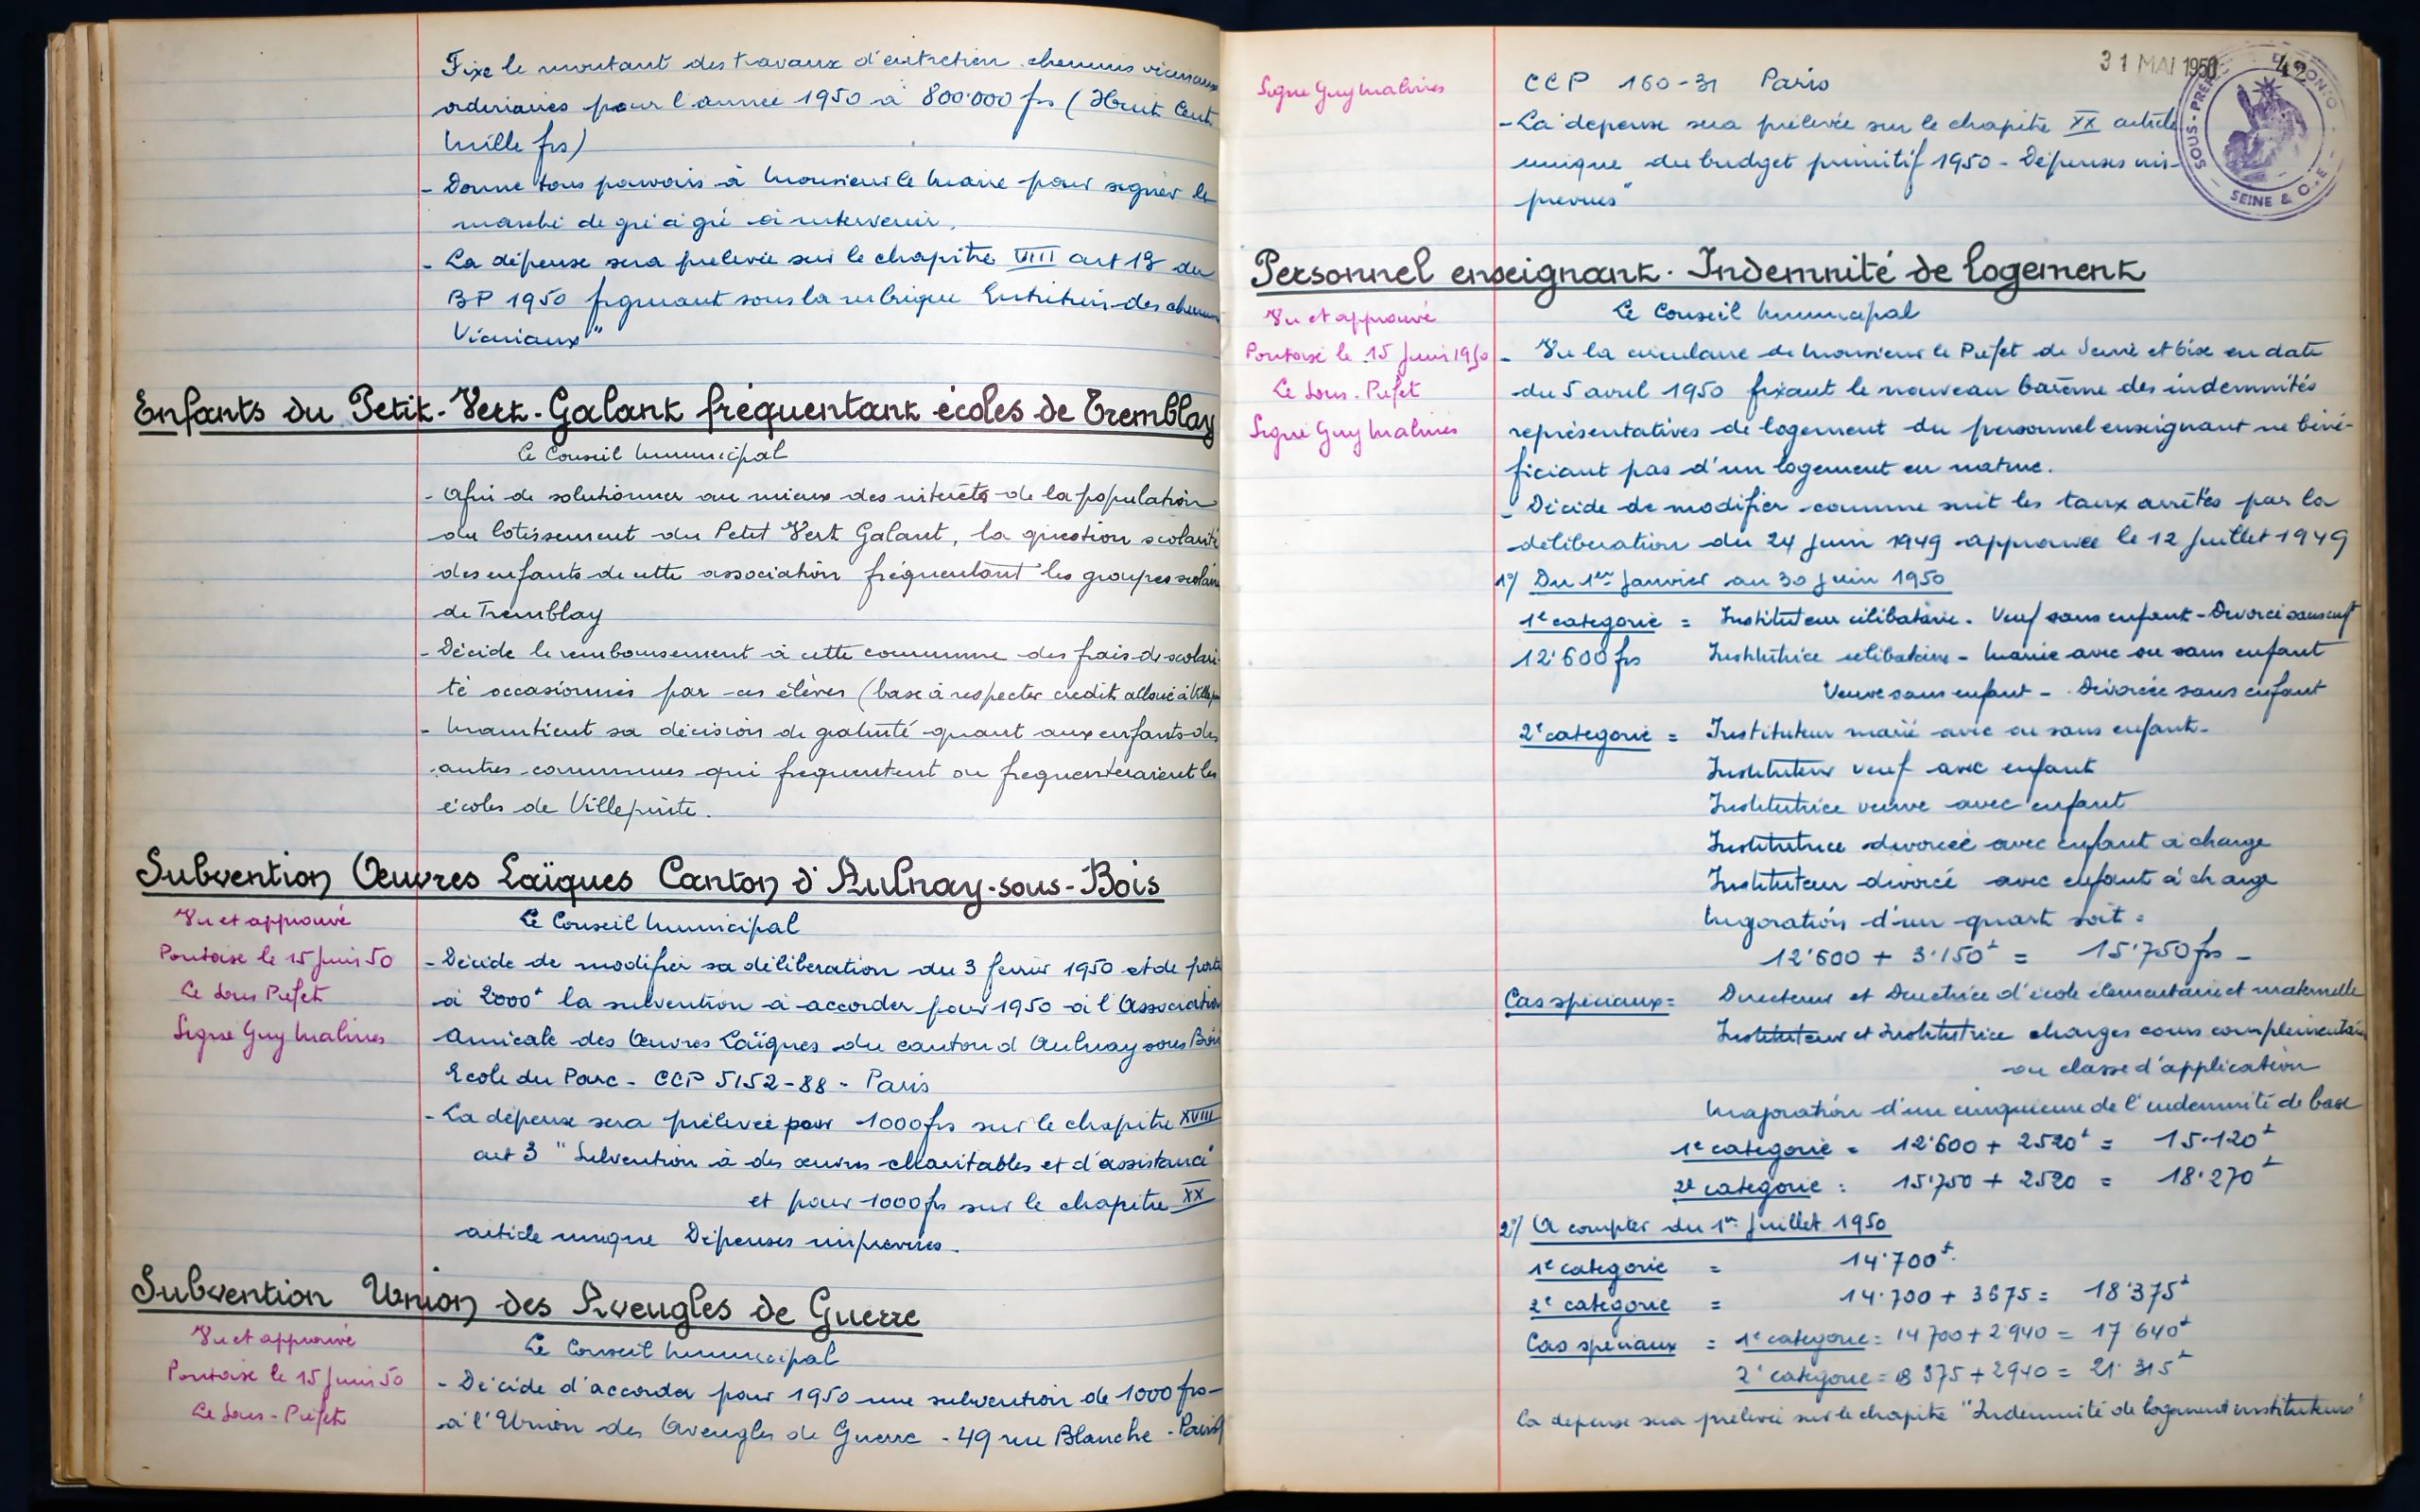 Fixe le montant des travaux d'entretien chemins vicinaux
ordinaires pour l'année 1950 à 800.000 frs (Huit Cent
Mille frs)
- Donne tous pouvoirs à Monsieur le Maire pour signer le
marché de gré à gré à intervenir.
- La dépense sera prélevée sur le chapitre VIII art 13 du
BP 1950 figurant sous la rubrique Entretien des chemins
Vicinaux"
Enfants du Petit-Vert-Galant fréquentant écoles de Tremblay
Le Conseil Municipal
- Afin de solutionner au mieux des intérêts de la population
du lotissement du Petit Vert Galant, la question scolarité
des enfants de cette association fréquentant les groupes scolaires
de Tremblay
- Décide le remboursement à cette commune des frais de scolari-
té occasionnés par ces élèves (base à respecter crédit alloué à
- Maintient sa décision de gratuité quant aux enfants des
autres communes qui frequentent ou frequenteraient les
écoles de Villepinte.
Subvention Œuvres Laïques Canton d'Aulnay-sous-Bois
Vu et approuvé
Pontoise le 15 Juin 50
Le Sous Prefet
Signé Guy Malines
Le Conseil Municipal
- Décide de modifier sa déliberation du 3 fevrier 1950 et de porter
à 2000 f la subvention à accorder pour 1950 à l'Association
Amicale des Œuvres Laïques du canton d Aulnay sous Bois
Ecole du Parc - CCP 5152-88 - Paris
- La dépense sera prélevée pour 1000 frs sur le chapitre XVIII
art 3 "Subvention à des œuvres charitables et d'assistance"
et pour 1000 frs sur le chapitre XX
article unique Dépenses imprévues.
Subvention Union des Aveugles de Guerre
Vu et approuvé
Pontoise le 15 Juin 50
Le Sous-Préfet
Le Conseil Municipal
- Décide d'accorder pour 1950 une subvention de 1000 frs-
à l'Union des Aveugles de Guerre - 49 rue Blanche - Paris
Signé Guy Malines
31 MAI 1950
42
SOUS-PRÉF
SEINE & O.
CCP 160-31 Paris
- La dépense sera prélevée sur le chapitre XX article
unique du budget primitif 1950 - Dépenses im-
prévues"
Personnel enseignant. Indemnité de logement
Vu et approuvé
Pontoise le 15 Juin 1950
Le Sous-Préfet
Signé Guy Malines
Le Conseil Municipal
- Vu la circulaire de Monsieur le Préfet de Seine et Oise en date
du 5 avril 1950 fixant le nouveau barème des indemnités
représentatives de logement du personnel enseignant ne béné-
ficiant pas d'un logement en nature.
- Décide de modifier comme suit les taux arrêtés par la
déliberation du 24 Juin 1949 approuvée le 12 Juillet 1949
1°/ Du 1er Janvier au 30 Juin 1950
1e categorie = Instituteur célibataire. Veuf sans enfant - Divorcé sans enft
12.600 frs Institutrice célibataire - Mariée avec ou sans enfant
Veuve sans enfant - Divorcée sans enfant
2e categorie = Instituteur marié avec ou sans enfant.
Instituteur veuf avec enfant
Institutrice veuve avec enfant
Institutrice divorcée avec enfant à charge
Instituteur divorcé avec enfant à charge
Majoration d'un quart soit =
12.600 + 3.150 f = 15.750 frs -
Cas spéciaux = Directeur et Directrice d'école élementaire et maternelle
Instituteur et Institutrice charges cours complémentaire
ou classe d'application
Majoration d'un cinquième de l'indemnité de base
1e categorie = 12.600 + 2520 f = 15.120 f
2e categorie = 15.750 + 2520 = 18.270 f
2°/ A compter du 1er Juillet 1950
1e categorie = 14.700 f.
2e categorie = 14.700 + 3675 = 18.375 f
Cas spéciaux = 1e categorie = 14 700 + 2 940 = 17 640 f
2e categorie = 18 375 + 2940 = 21 315 f
La dépense sera prélevée sur le chapitre "Indemnité de logement instituteurs"